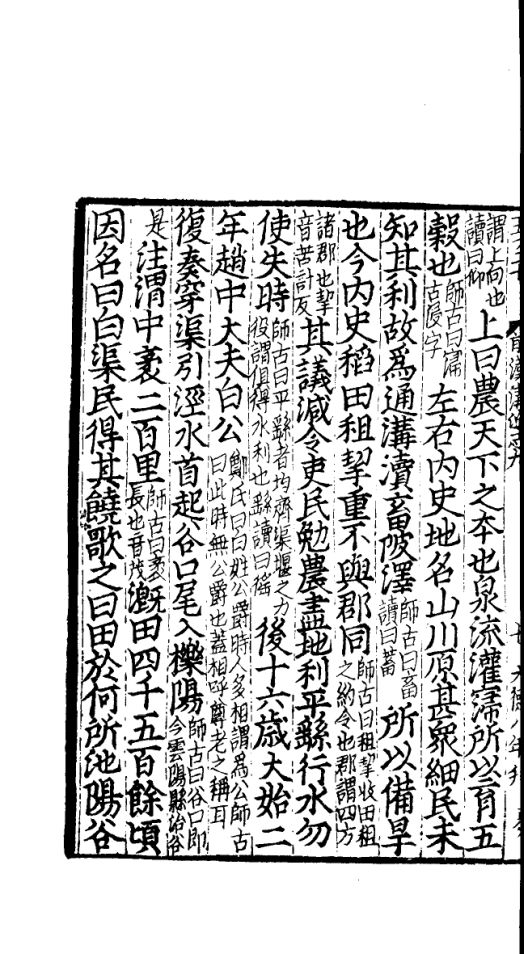 謂上向也讀曰仰上曰農天下之本也泉流灌寖所以育五
穀也師古曰寖古浸字左右内史地名山川原甚衆細民未
知其利故爲通溝瀆畜陂澤師古曰畜讀曰蓄所以備旱
也今内史稻田租挈重不與郡同師古曰租挈收田租之約令也郡謂四方
諸郡也挈音苦計反其議減令吏民勉農盡地利平繇行水勿
使失時師古曰平繇者均齊渠堰之力役謂俱得水利也繇讀曰徭後十六歲大始二
年趙中大夫白公鄭氏曰白姓公爵時人多相謂爲公師古曰此時無公爵也蓋相呼尊老之稱耳
復奏穿渠引涇水首起谷口尾入櫟陽師古曰谷口即今雲陽縣治谷
是注渭中袤二百里師古曰袤長也音茂溉田四千五百餘頃
因名曰白渠民得其饒歌之曰田於何所池陽谷